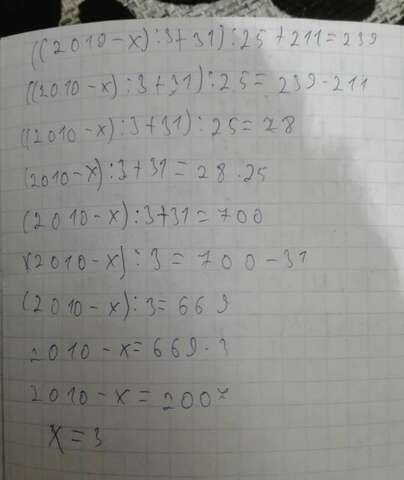 ((2010-x):3+31):25+211=239
((2010-x):3+31):25=239-211
((2010-x):3+31):25=28
(2010-x):3+31=28·25
(2010-x):3+31=700
(2010-x):3=700-31
(2010-x):3=669
2010-x=669·3
2010-x=2007
x=3